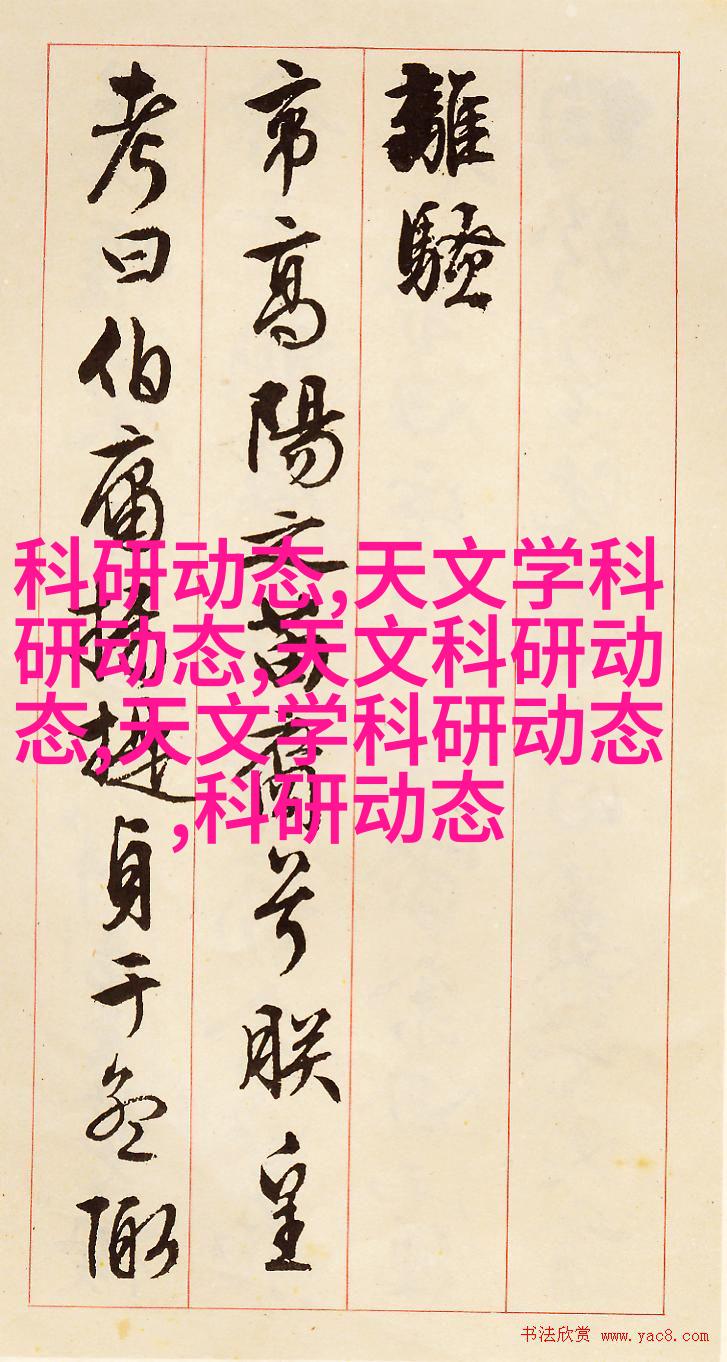 離騷
帝高陽之苗裔兮朕皇
考曰伯庸攝提貞于孟陬
科研动态,天文学科
研动态,天文科研动
态,天文学科研动态
,科研动态
书法欣赏 www.yac8.com